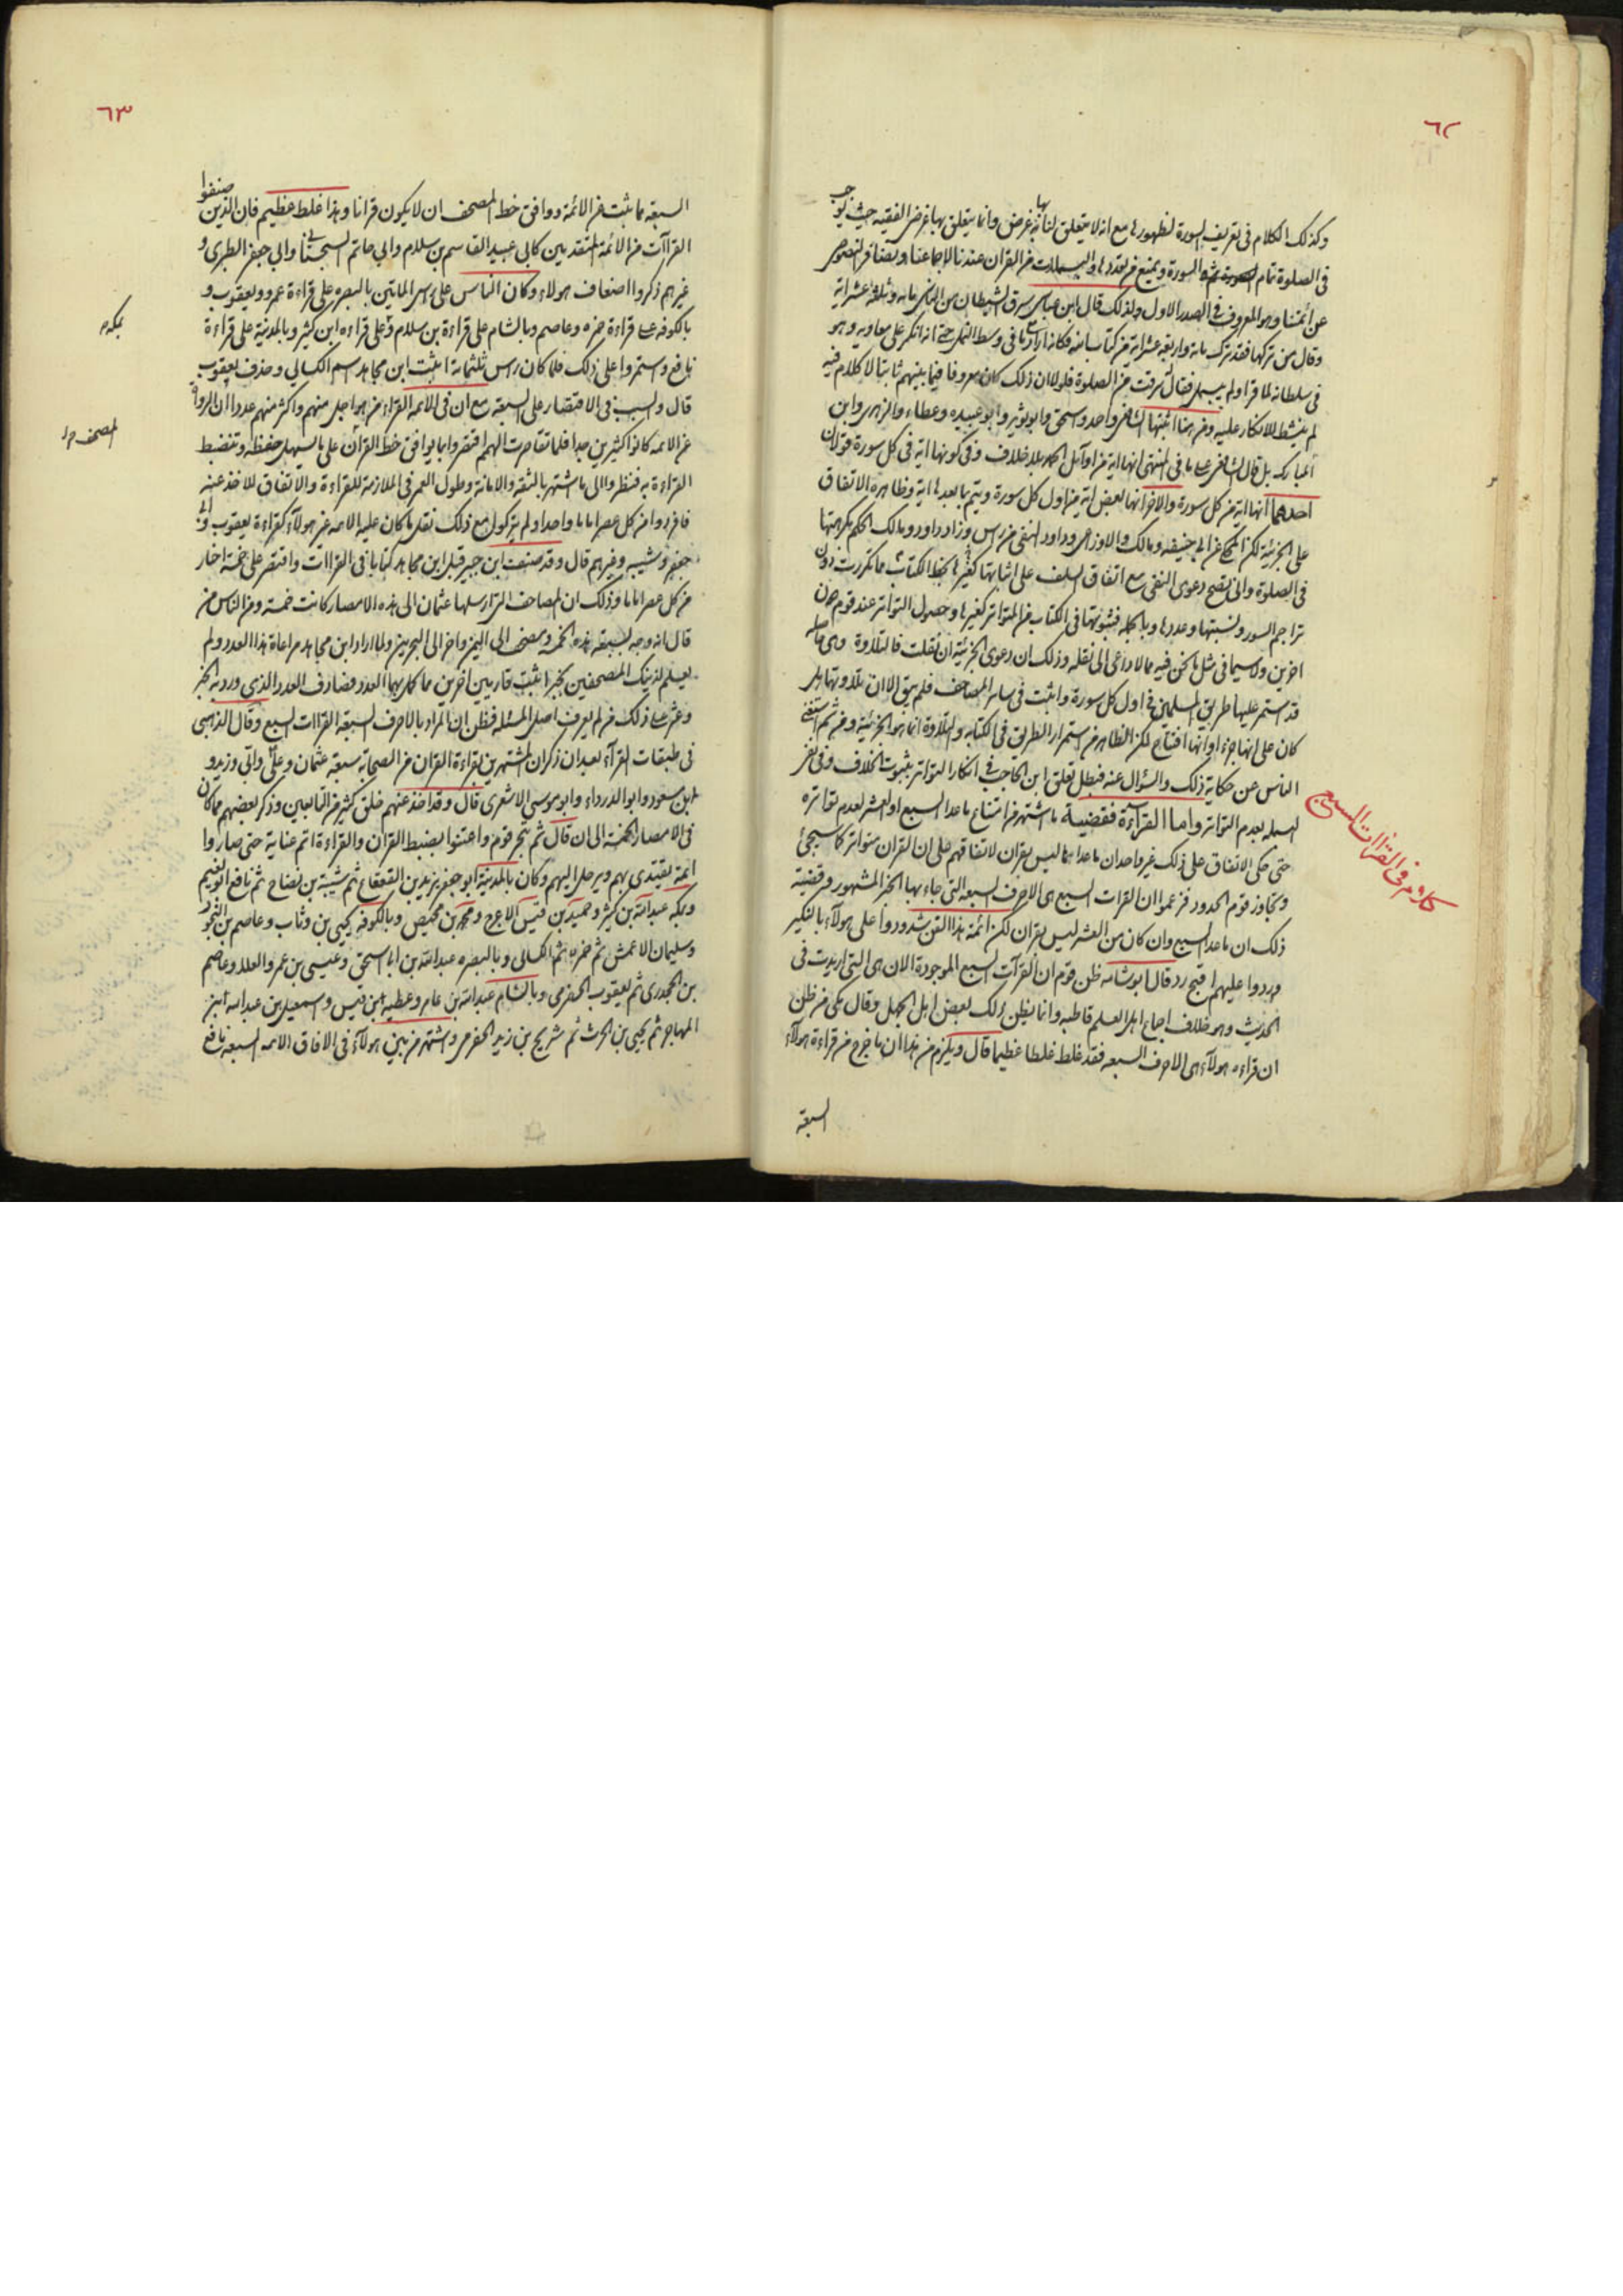 ٦٢
وكذلك الكلام فى تعريف السورة لظهورها مع انه لا يتعلق لنا به غرض وانما يتعلق بها غرض الفقيه حيث يوجب
فى الصلوة تمام السورة ويمنع من تعددها والبسملات من القران عندنا لاجماعنا ونصنا فى النصوص
عن ائمتنا وهو المعروف فى الصدر الاول ولذلك قال ابن عباس سرق الشيطان من الناس مائه وثلثه عشر اية
وقال من تركها فقد ترك مائة واربعة عشر اية من كتاب الله فكانه اراد ما فى وسط النمل حتى انه انكر على معاويه وهو
فى سلطانه لما قرا ولم يبسمل فقال سرقت من الصلوة فلولا ان ذلك كان معروفا فيما بينهم ثابتا لا كلام فيه
لم ينشط للانكار عليه ومن هنا اثبتها الشافعى واحمد واسحق وابو ثور وابو عبيده وعطاء والزهرى وابن
المبارك بل قال الشافعى على ما فى المنتهى انها اية من اوائل الحمد بلا خلاف وفى كونها اية فى كل سورة قولان
احدهما انها اية من كل سورة والاخر انها بعض اية من اول كل سورة ويتم بما بعدها اية وظاهره الاتفاق
على الجزئية لكن المحكى عن ابى حنيفه ومالك والاوزاعى وداود النفى من راس وزاد داود ومالك الحكم بكراهتها
فى الصلوة وانى تصح دعوى النفى مع اتفاق السلف على اثباتها كغيرها بخط الكتاب مما تكررت دون
تراجم السور ونسبتها وعددها وبالجمله فثبوتها فى الكتاب من المتواتر كغيرها وحصول التواتر عند قوم دون
اخرين ولا سيما فى مثل ما نحن فيه مما لا داعى الى نقله وذلك ان دعوى الجزئية ان نقلت فالتلاوة وهى ما
قد استمر عليها طريق المسلمين فى اول كل سورة واثبت فى ساير المصاحف فلم يبق الا ان تلاوتها هل
كان على انها جزء او انها افتتاح لكن الظاهر من استمرار الطريق فى الكتابه والتلاوة انما هو الجزئية ومن ثم استغنى
الناس عن حكاية ذلك والسؤال عنه فبطل تعلق ابن الحاجب فى انكار التواتر بثبوت الخلاف وفى نفى
البسمله بعدم التواتر واما القراءة فقضية ما اشتهر من امتناع ما عدا السبع او العشر لعدم تواتره
كلام فى القراات السبع
حتى حكى الاتفاق على ذلك غير واحد ان ما عداها ليس بقران لاتفاقهم على ان القران متواتر كما سيجئ
وتجاوز قوم الحدود فزعموا ان القرات السبع هى الاحرف السبعه التى جاء بها الخبر المشهور وقضية
ذلك ان ما عدا السبع وان كان من العشر ليس بقران لكن ائمة هذا الفن شددوا على هولاء بالنكير
وردوا عليهم اقبح رد قال ابو شامه ظن قوم ان القرآت السبع الموجودة الان هى التى اريدت فى
الحديث وهو خلاف اجماع اهل العلم قاطبه وانما يظن ذلك بعض اهل الجهل وقال مكى من ظن
ان قراءه هولآء هى الاحرف السبعه فقد غلط غلطا عظيما قال ويلزم من هذا ان ما خرج من قراءة هولآء
السبعة
٦٣
السبعة مما ثبت من الائمة ووافق خط المصحف ان لا يكون قرانا وهذا غلط عظيم فان الذين صنفوا
القراآت من الائمة المتقدمين كابى عبيد القاسم بن سلام وابى حاتم السجستانى وابى جعفر الطبرى و
غيرهم ذكروا اضعاف هولاء وكان الناس على راس الماتين بالبصره على قراءة عمرو ويعقوب و
بالكوفه على قراءة حمزه وعاصم وبالشام على قراءة بن سلام وعلى قراءه ابن كثير وبالمدينة على قراءة
بمكه م
نافع واستمروا على ذلك فلما كان راس ثلثمائة اثبت ابن مجاهد اسم الكسائى وحذف يعقوب
قال والسبب فى الاقتصار على السبعة مع ان فى الائمه القراء من هو اجل منهم واكثر منهم عددا ان الرواة
عن الائمه كانوا كثيرين جدا فلما تقاصرت الهمم اقتصروا مما يوافق خط القرآن على ما يسهل حفظه وتنضبط
المصحف م
القراءة به فنظروا الى ما اشتهر بالثقه والامانة وطول العمر فى الملازمة للقراءة والاتفاق للاخذ عنه
فافردوا من كل عصر اماما واحدا ولم يتركوا مع ذلك نقل ما كان عليه الائمه غير هولآء كقراءة يعقوب وابى
جعفر وشيبه وغيرهم قال وقد صنف ابن جبير قبل ابن مجاهد كتابا فى القراات واقتصر على خمسة اختار
من كل عصر اماما وذلك ان المصاحف التى ارسلها عثمان الى هذه الامصار كانت خمسة ومن الناس من
قال انه وجه بسبعة هذه الخمسة ومصحف الى اليمن واخر الى البحرين ولما اراد ابن مجاهد مراعاة هذا العدد ولم
يعلم لذينك المصحفين بخبر اثبت قاريين اخرين مما كمل بهما العدد فصادف العدد الذى ورد به الخبر
وعثر على ذلك من لم يعرف اصل المسئله فظن ان المراد بالاحرف السبعة القراات السبع وقال الذهبى
فى طبقات القرآء بعد ان ذكر ان المشتهرين بقراءة القران من الصحابة سبعة عثمان وعلى وابى وزيد و
ابن مسعود وابو الدرداء وابو موسى الاشعرى قال وقد اخذ عنهم خلق كثير من التابعين وذكر بعضهم مما كان
فى الامصار الخمسة الى ان قال ثم تجرد قوم واعتنوا بضبط القران والقراءة اتم عناية حتى صاروا
ائمة يقتدى بهم ويرحل اليهم وكان بالمدينة ابو جعفر يزيد بن القعقاع ثم شيبة بن نصاح ثم نافع ابو نعيم
وبمكه عبد الله بن كثير وحميد بن قيس الاعرج ومحمد بن محيص وبالكوفه يحيى بن وثاب وعاصم بن النجود
وسليمان الاعمش ثم حمزه ثم الكسائى وبالبصره عبد الله بن ابا اسحق وعيسى بن عمر والعلاء وعاصم
بن الجحدرى ثم يعقوب الحضرمى وبالشام عبد الله بن عامر وعطيه ابن قيس واسمعيل بن عبد الله ابن
المهاجر ثم يحيى بن الحرث ثم شريح بن زيد الحضرمى واشتهر من بين هولآء فى الافاق الائمه السبعه نافع